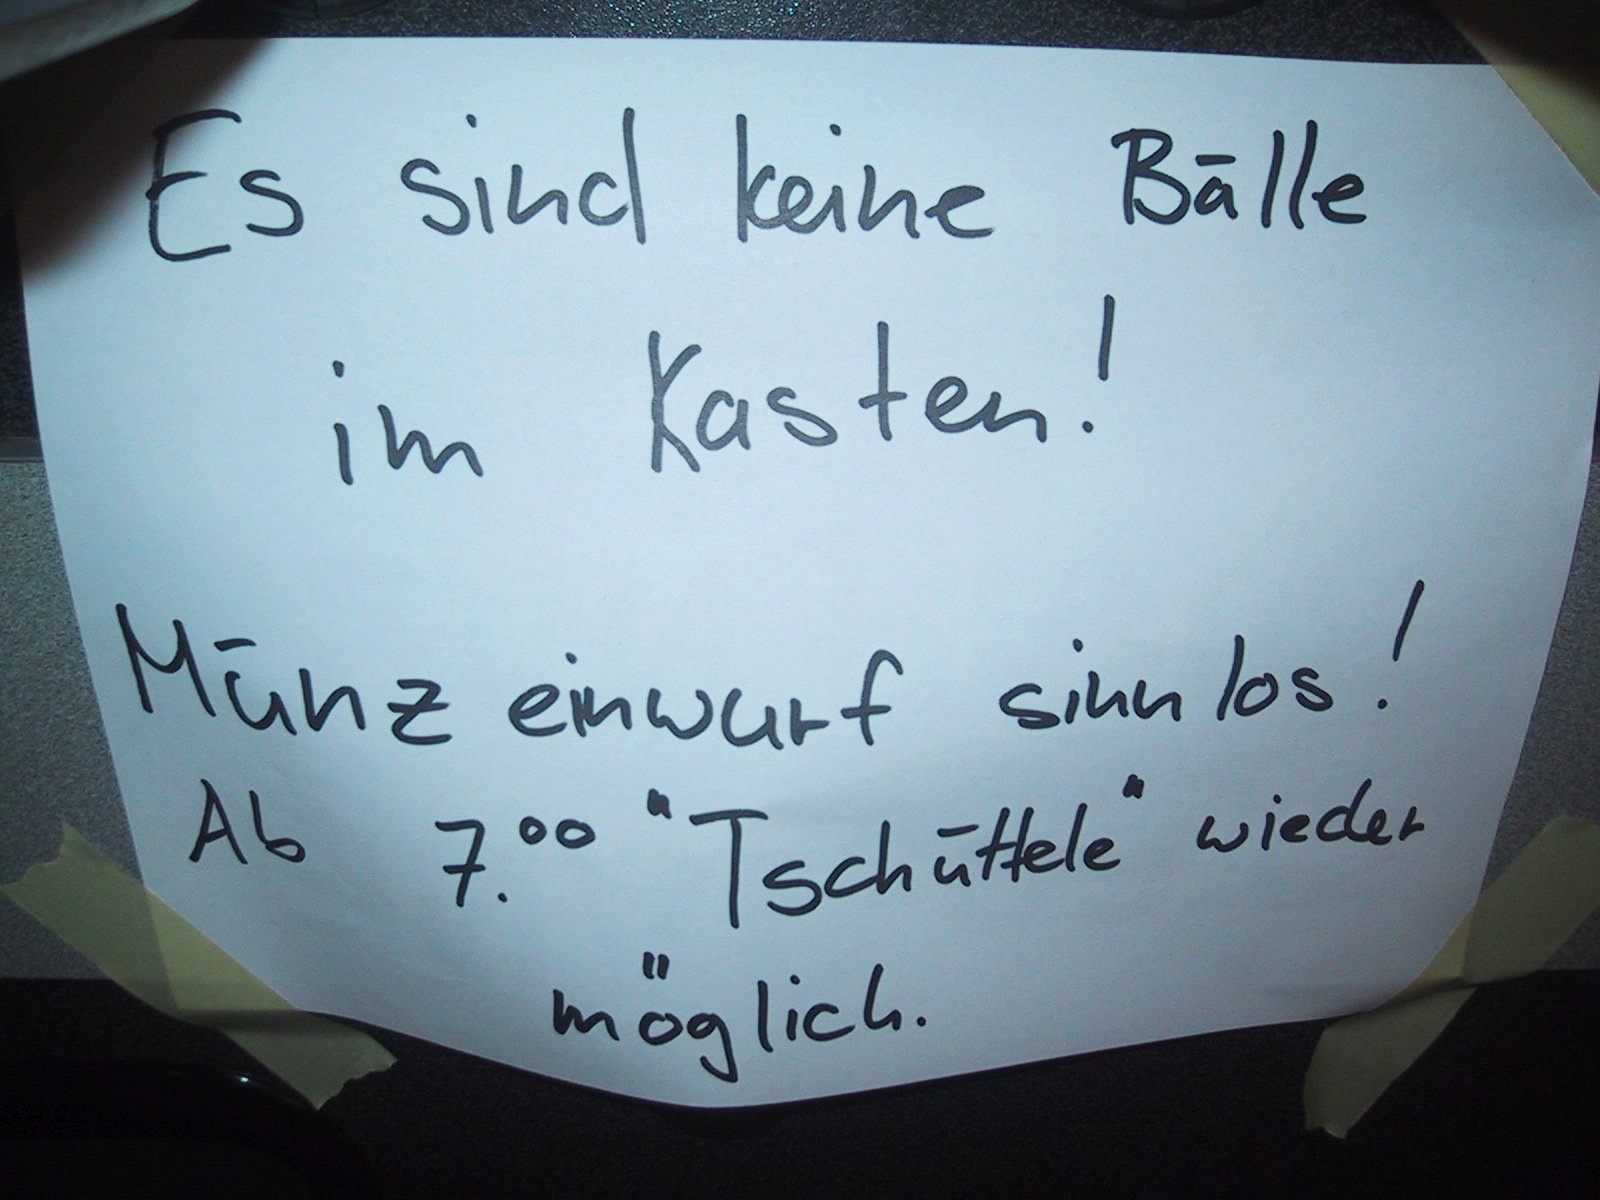 Es sind keine Bälle
im Kasten!
Münzeinwurf sinnlos!
Ab 7.⁰⁰ "Tschüttele" wieder
möglich.